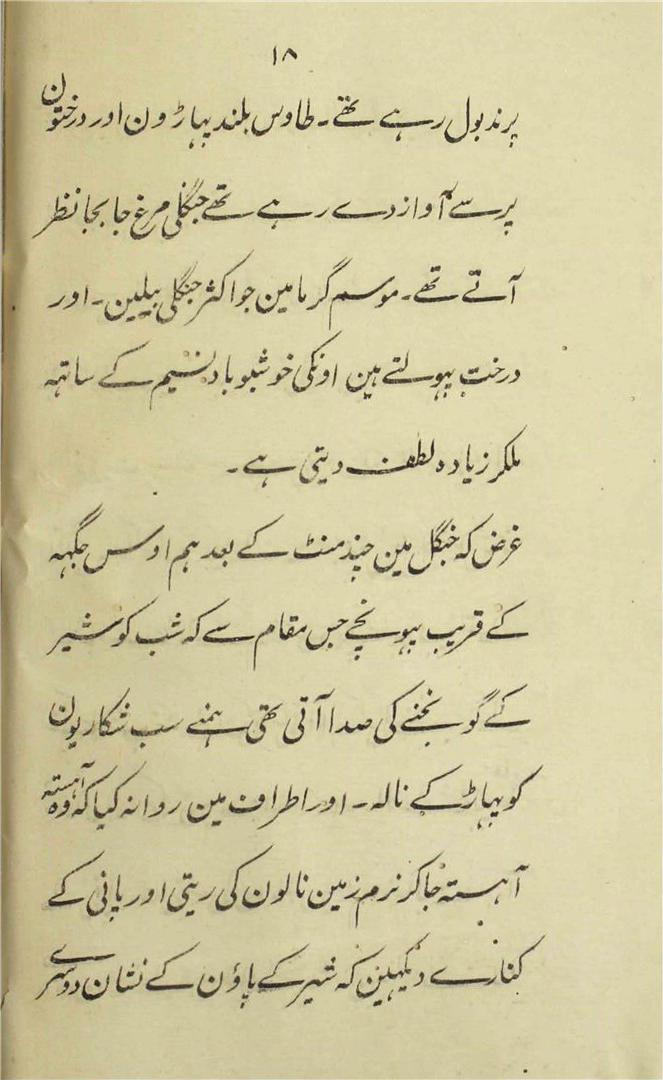 ۱۸
پرند بول رہے تھے۔ طاوس بلند پہاڑون اور درختون
پر سے آواز دے رہے تھے جنگلی مرغ جا بجا نظر
آتے تھے۔ موسم گرما مین جو اکثر جنگلی بیلین۔ اور
درخت پہولتے ہین اونکی خوشبو باد نسیم کے ساتہہ
ملکر زیادہ لطف دیتی ہے۔
غرض کہ جنگل مین چند منٹ کے بعد ہم اوس جگہہ
کے قریب پہونچے جس مقام سے کہ شب کو شیر
کے گونجنے کی صدا آتی تھی ہمنے سب شکاریون
کو پہاڑ کے نالہ۔ اور اطراف مین روانہ کیا کہ وہ آہستہ
آہستہ جا کر نرم زمین نالون کی ریتی اور پانی کے
کنارے دیکہین کہ شیر کے پاؤن کے نشان دوسرے